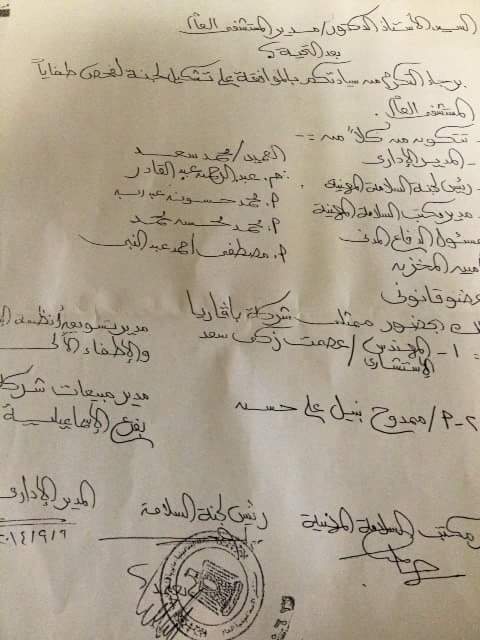 السيد الأستاذ الدكتور / مدير المستشفى العام
بعد التحية ؟
برجاء التكرم من سيادتكم بالموافقة على تشكيل لجنة لفحص طفايات
المستشفى العام .
- تتكون من كلاً من :-
- المدير الإدارى العميد / محمد سعد
- رئيس لجنة السلامة المهنية . م . عبد الرحمن عبد القادر
- مدير مكتب السلامة المهنية أ . محمد حسونه
مسئول الدفاع المدنى أ . محمد حسن محمد
أمين المخزن أ . مصطفى أحمد عبد النبى
عضو قانونى
بحضور ممثلى شركة باڤاريا
١ - المهندس / عصمت زكى سعد مدير تسويق أنظمة
الإستشارى والإطفاء الآلى
٢ - أ / ممدوح نبيل على حسن مدير مبيعات شركة
بفرع الإسماعيلية
مكتب السلامة المهنية رئيس لجنة السلامة المدير الإدارى